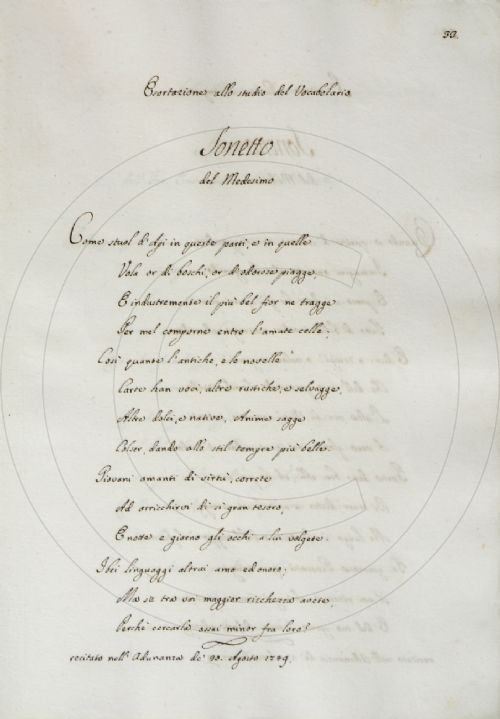 30.
Esortazione allo studio del Vocabolario
Sonetto
del Medesimo
Come stuol d'Api in queste parti, e in quelle
Vola or di boschi, or d'odorose piagge
E industremente il più bel fior ne tragge
Per mel comporne entro l'amate celle;
Così quante l'antiche, e le novelle
Carte han voci, altre rustiche, e selvagge,
Altre dolci, e native, Anime sagge
Colser, dando allo stil tempre più belle.
Giovani amanti di virtù, correte
Ad arricchirvi di sì gran tesoro,
E notte e giorno gli occhi a lui volgete.
I bei linguaggi altrui amo ed onoro;
Ma se tra voi maggior ricchezza avete,
Perchè cercarla assai minor fra loro?
recitato nell'Adunanza de' 30. Agosto 1749.